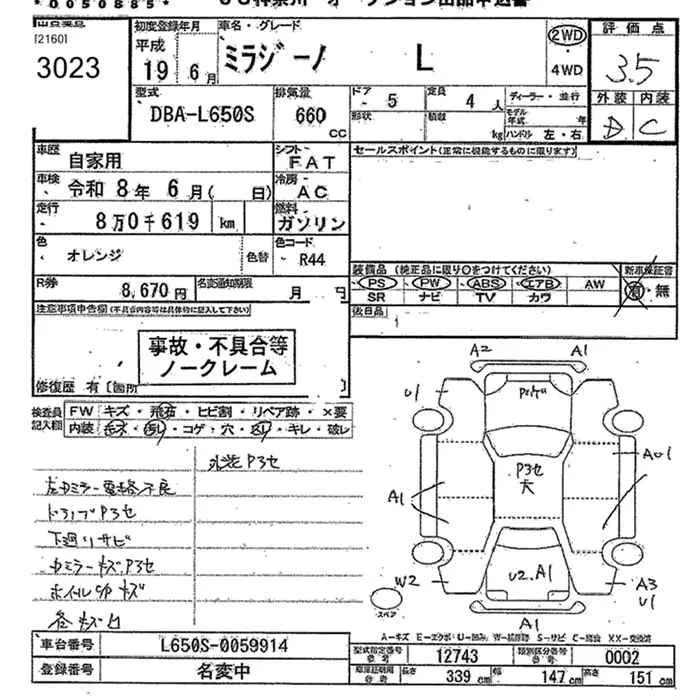 *0050885*
出品店
[2160]
3023
初度登録年月
平成
19 6月
車名・グレード
ミラジーノ L
2WD
・4WD
評価点
3.5
型式
DBA-L650S
排気量
660
CC
ドア
- 5
定員
4人
形状
積載
kg
ディーラー・並行
モデル年式 年
ハンドル 左・右
外装 内装
D C
車歴
自家用
シフト
FAT
セールスポイント(正常に機能するものに限ります)
車検
令和 8年 6月( 日)
冷房
AC
走行
8万0千619 km
燃料
ガソリン
色
オレンジ
色替
色コード
R44
R券
8,670円
名変通知期限
月
装備品(純正品に限り○をつけてください)
PS PW ABS エアB AW
SR ナビ TV カワ
新車保証書
有・無
後日品
注意事項申告欄(不具合内容等は具体的に記入して下さい)
事故・不具合等
ノークレーム
修復歴 有[箇所
検査員
記入欄
FW キズ・飛石・ヒビ割・リペア跡・×要
内装
コゲ・穴・
・キレ・破レ
外装P3セ
左ウミラー電格不良
P3セ
下廻リサビ
ウミラーキズ,P3セ
ホイルCapキズ
各キズ凹
A2 A1
U1
P3セ
大
A01
A1
U2.A1
W2
A3
U1
A1
スペア
A-キズ E-エクボ U-凹み W-
S-サビ C-腐蝕 XX-交換済
車台番号
L650S-0059914
登録番号
名変中
型式指定番号
12743
類別区分番号
0002
長さ 339 cm 幅 147 cm 高さ 151 cm